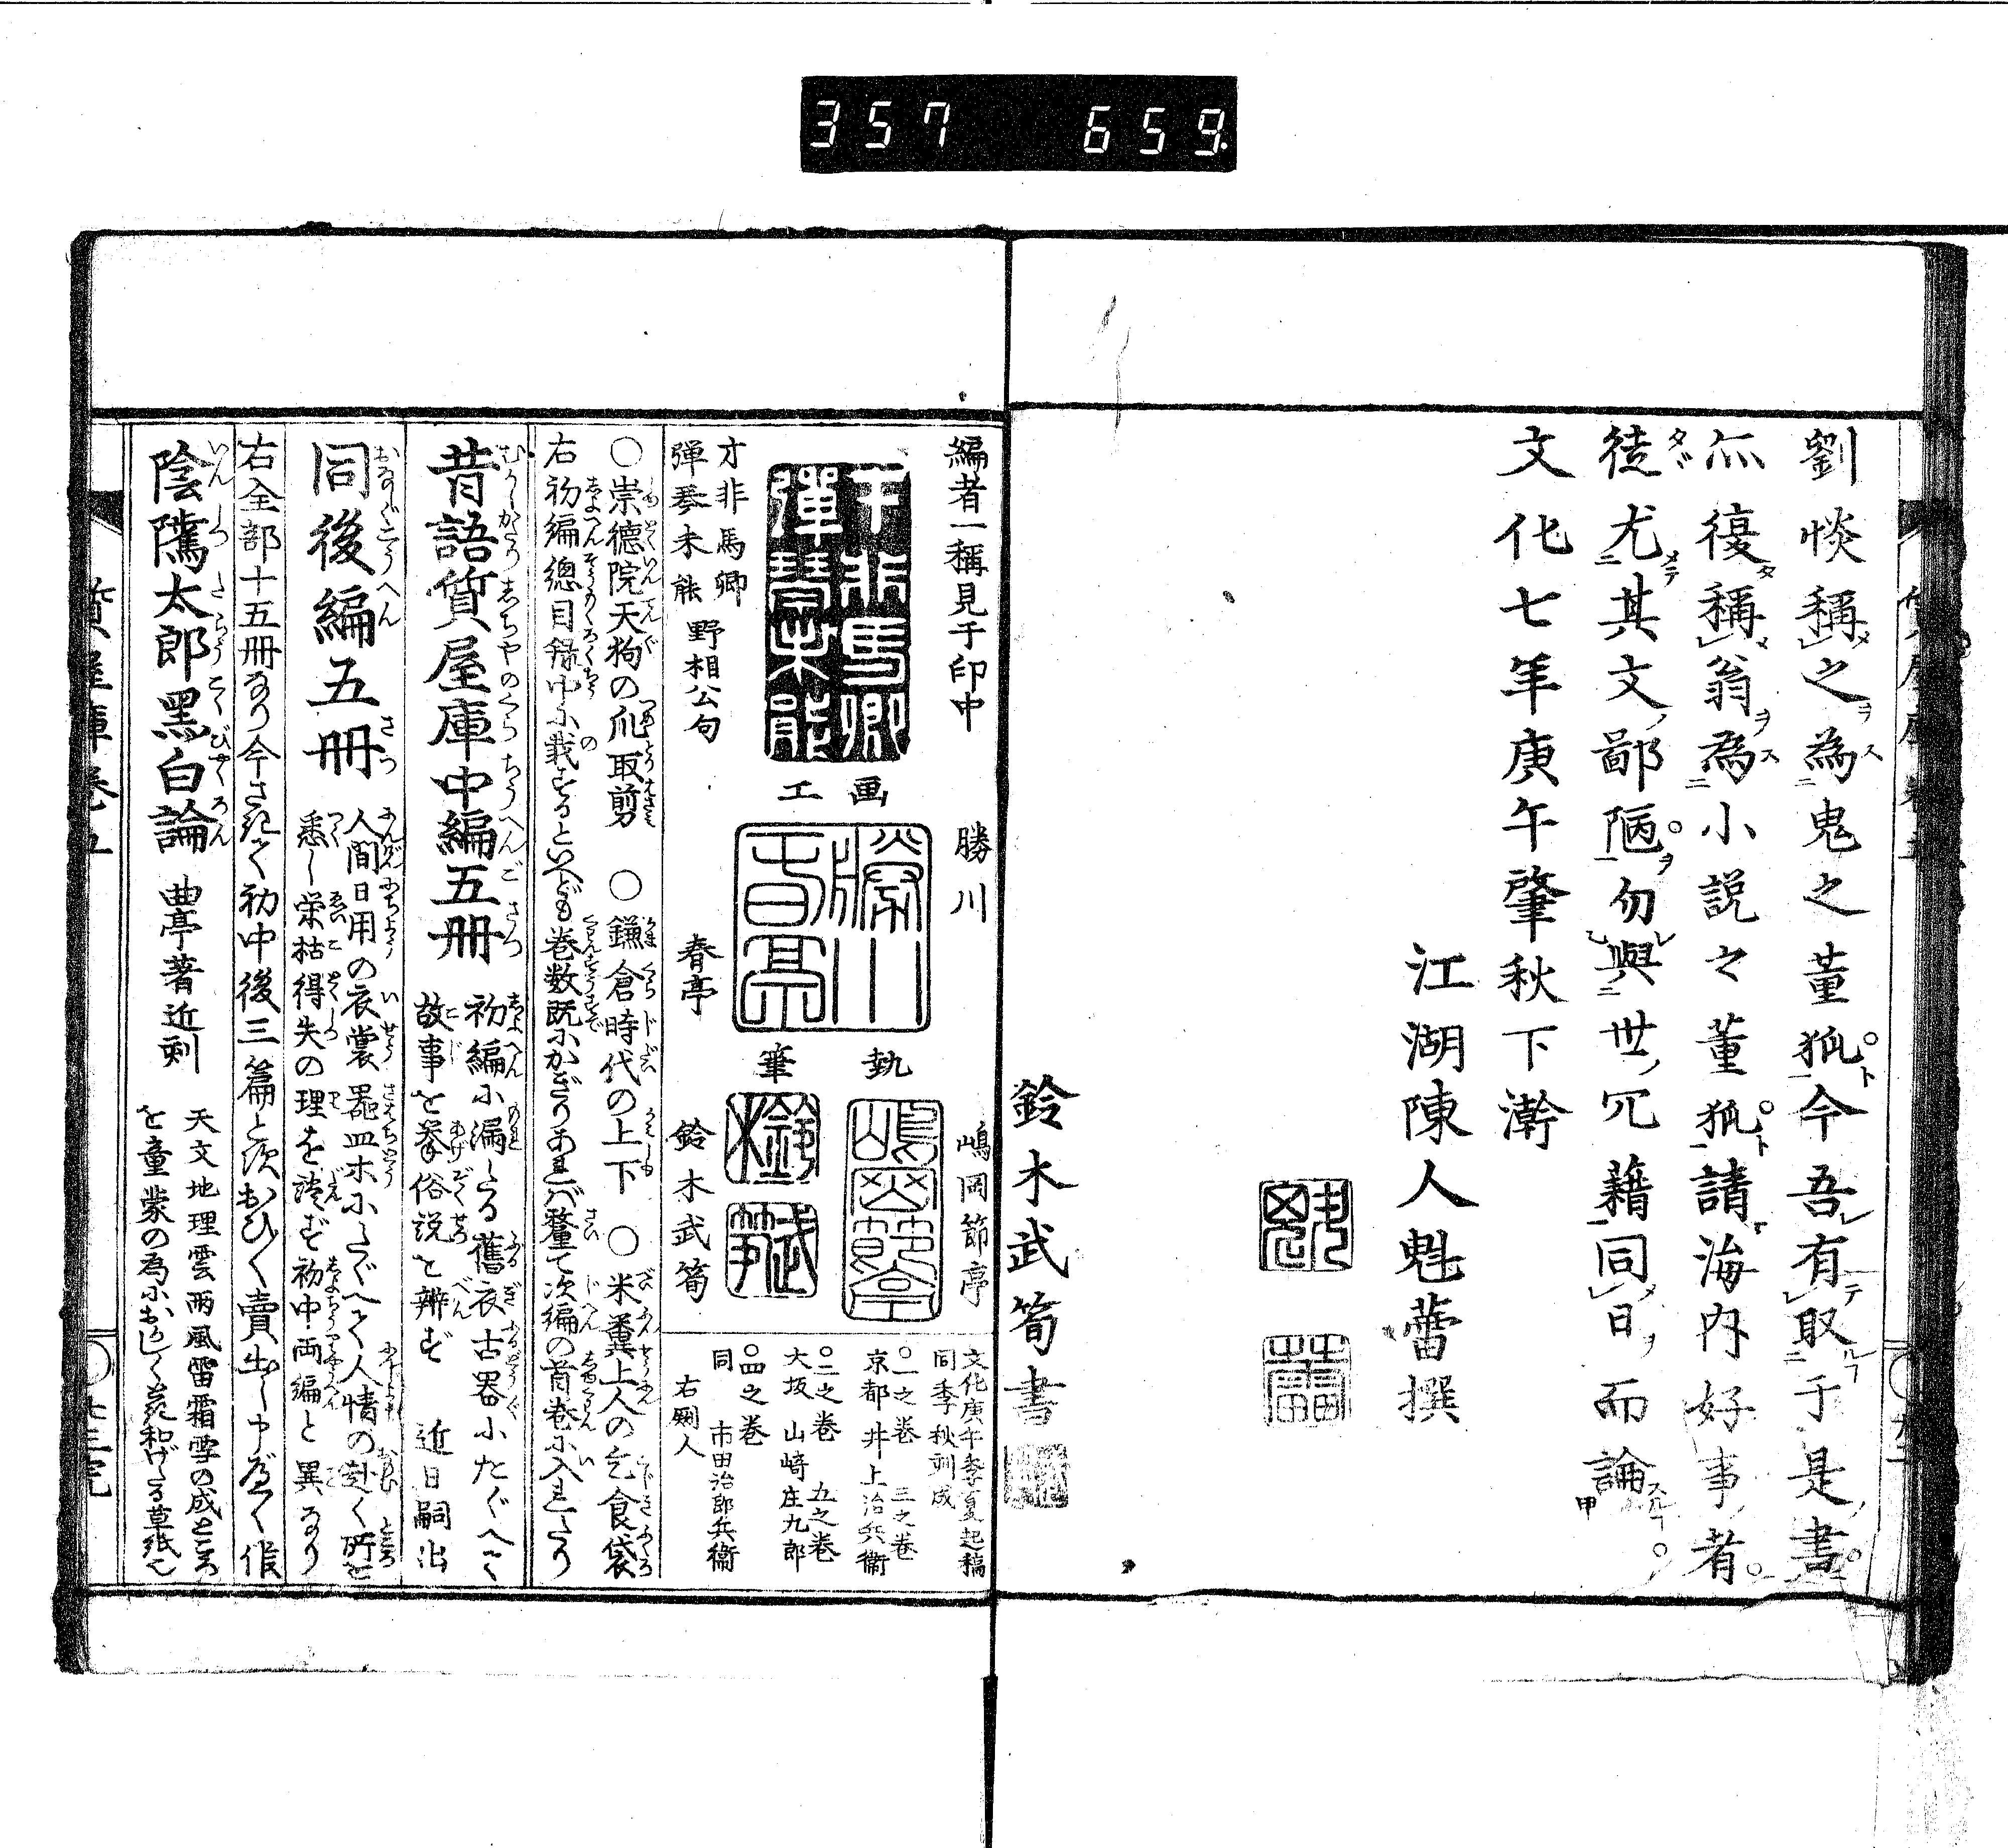 357 659
劉惔稱之為鬼之董狐今吾有取于是書
亦復稱翁為小説之董狐請海内好事者
徒尤其文鄙陋勿與世冗籍同日而論
文化七年庚午肇秋下澣
江湖陳人魁蕾撰
鈴木武筍書
編者一稱見于印中
才非馬卿
彈琴未能
才非馬卿
彈琴未能
野相公句
画工
勝川
春亭
執筆
嶋岡節亭
鈴木武筍
文化庚午季夏起稿
同季秋刻成
○一之巻 三之巻
京都 井上治兵衞
○二之巻 五之巻
大坂 山﨑庄九郎
○四之巻
同 市田治郎兵衞
右剞人
○崇徳院天狗の爪取剪 ○鎌倉時代の上下 ○米糞上人の乞食袋
右初編總目録中に載するといへども巻数既にかぎりあれバ釐て次編の首巻に入れたり
昔語質屋庫中編五冊
初編に漏たる舊衣古器にたぐへて
故事を挙俗説を辨ず 近日嗣出
同後編五冊
人間日用の衣裳器皿ホにたぐへて人情の赴く所を
悉し栄枯得失の理を談ず初中両編と異なり
右全部十五冊なり今さきて初中後三篇と
陰隲太郎黑白論
曲亭著近刻
天文地理雲雨風雷霜雪の成ところ
を童蒙の為に
質屋庫巻五